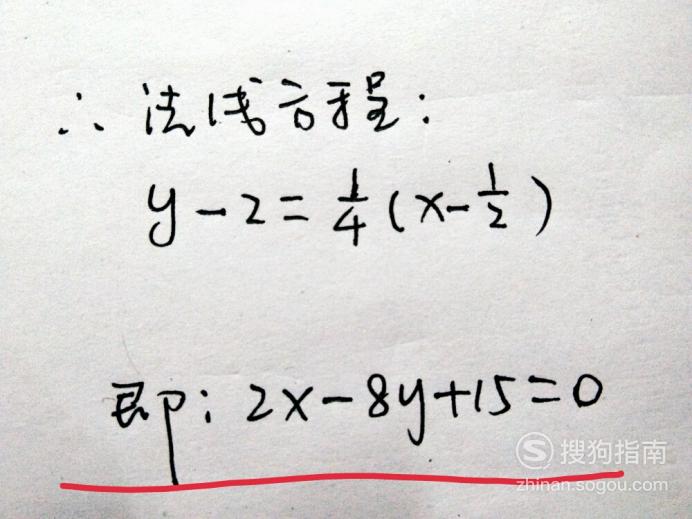 ∴ 法线方程:
y-2=\frac{1}{4}(x-\frac{1}{2})
即: 2x-8y+15=0
S 搜狗指南
zhinan.sogou.com